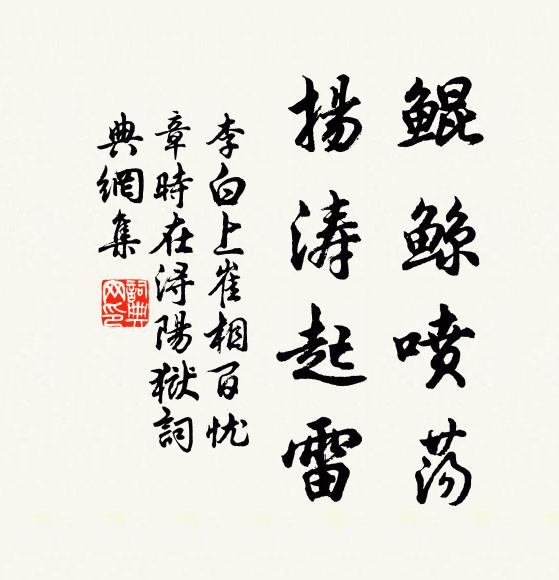 鯤鯨噴荡
揚涛起雷
李白上崔相百忧
章時在浔陽獄詞
典網集
詞典网印